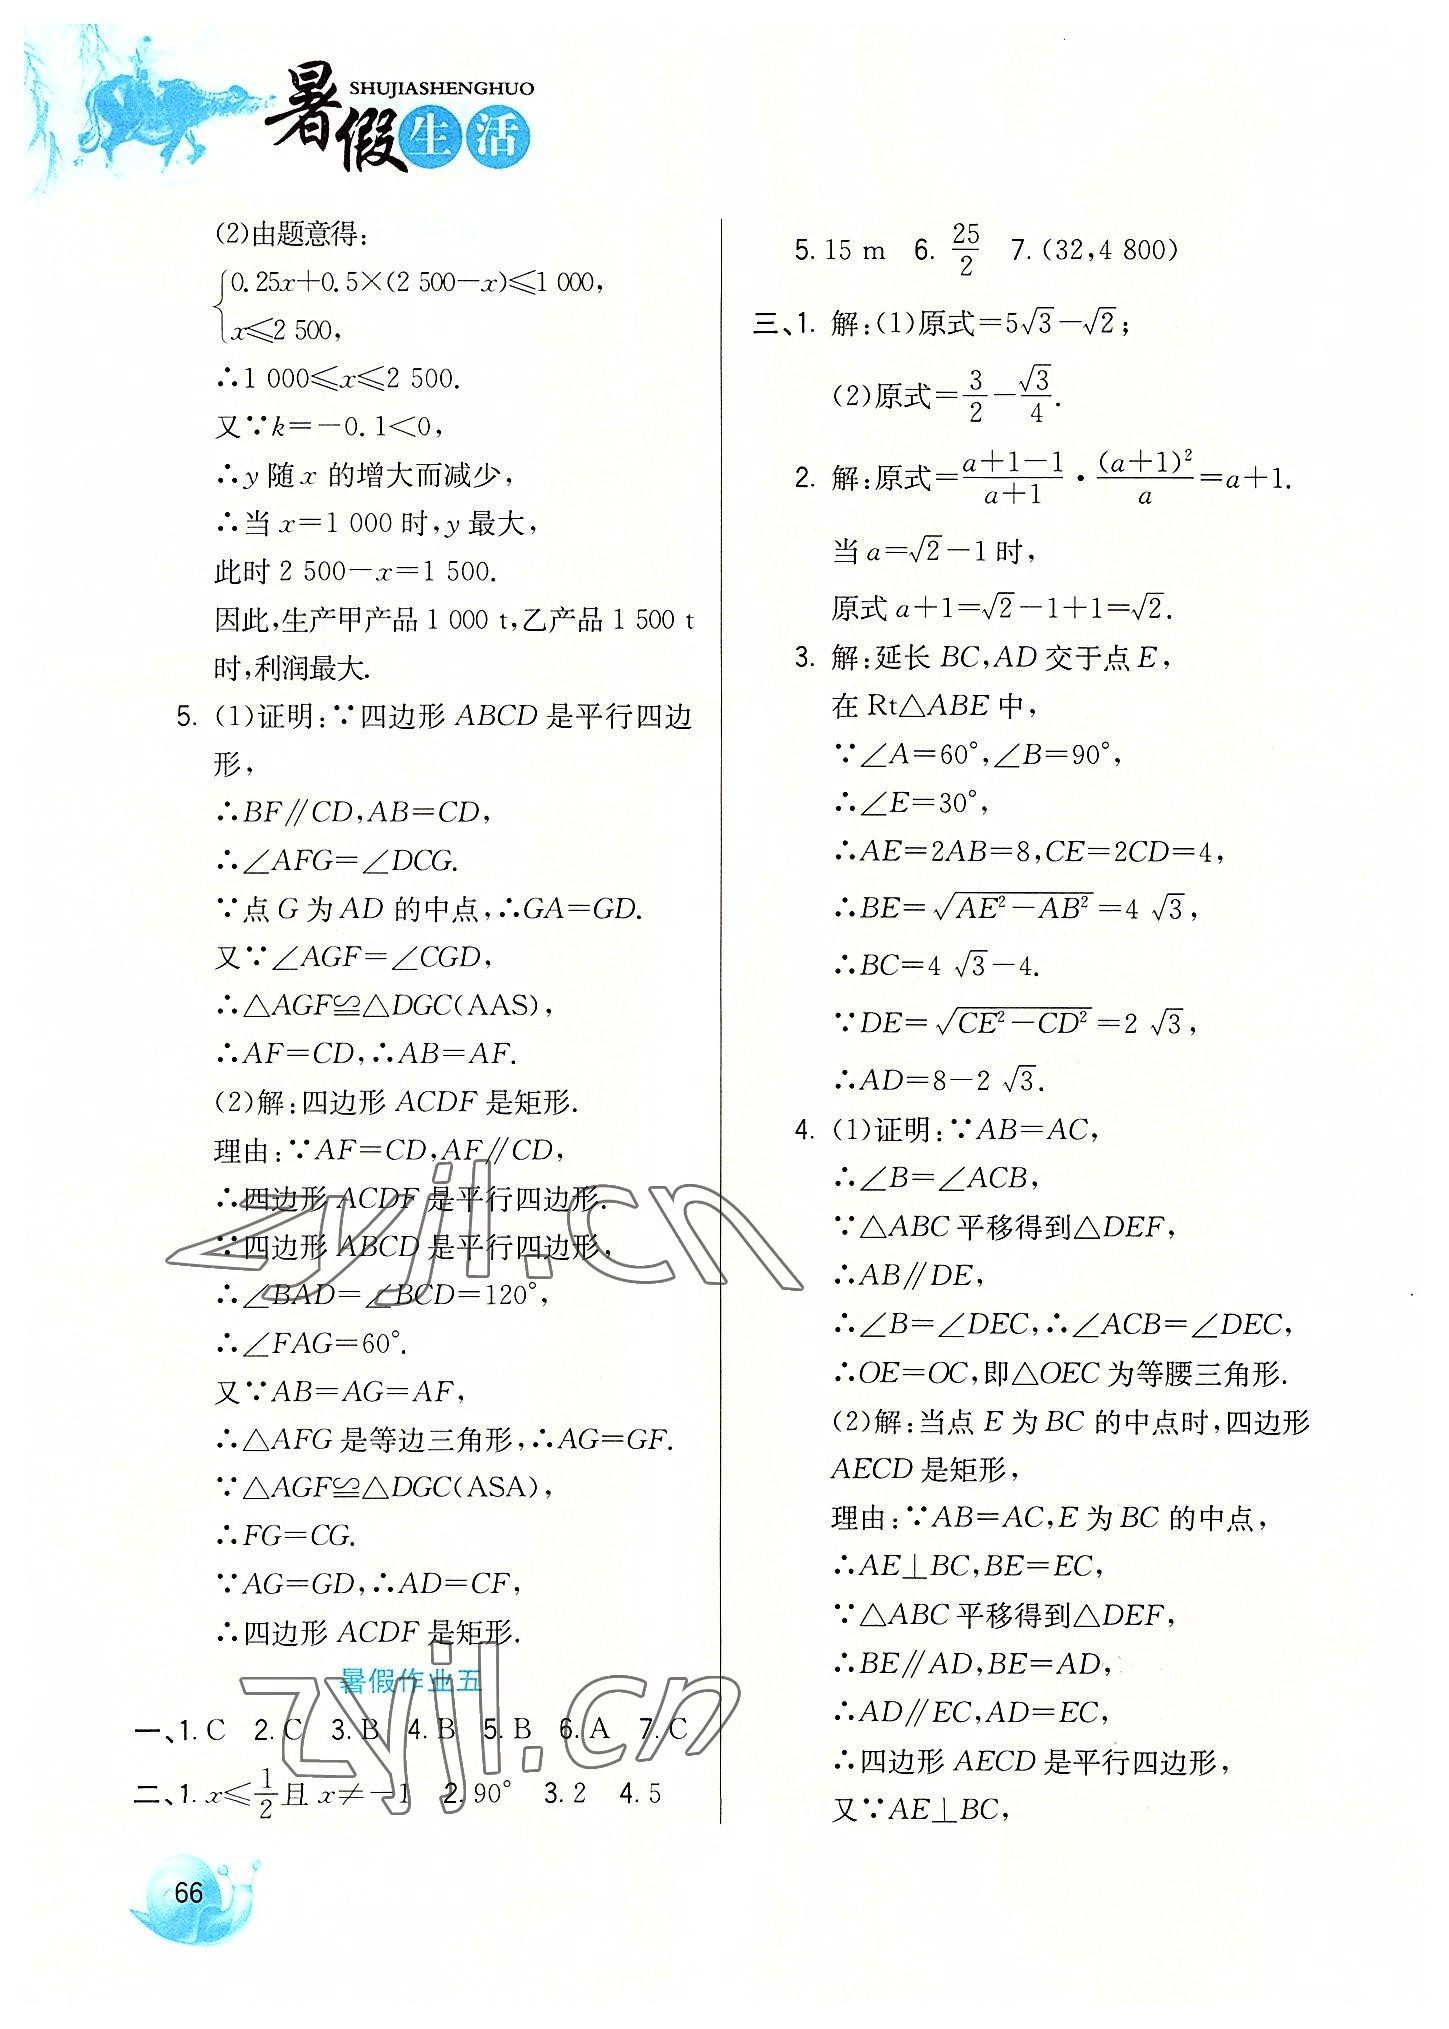 SHUJIASHENGHUO
暑假生活
(2)由题意得:
{0.25x+0.5×(2 500-x)≤1 000,
x≤2 500,
∴1 000≤x≤2 500.
又∵k=-0.1<0,
∴y随x的增大而减少,
∴当x=1 000时,y最大,
此时2 500-x=1 500.
因此,生产甲产品1 000 t,乙产品1 500 t
时,利润最大.
5. (1)证明:∵四边形ABCD是平行四边
形,
∴BF∥CD,AB=CD,
∴∠AFG=∠DCG.
∵点G为AD的中点,∴GA=GD.
又∵∠AGF=∠CGD,
∴△AGF≌△DGC(AAS),
∴AF=CD,∴AB=AF.
(2)解:四边形ACDF是矩形.
理由:∵AF=CD,AF∥CD,
∴四边形ACDF是平行四边形.
∵四边形ABCD是平行四边形,
∴∠BAD=∠BCD=120°,
∴∠FAG=60°.
又∵AB=AG=AF,
∴△AFG是等边三角形,∴AG=GF.
∵△AGF≌△DGC(ASA),
∴FG=CG.
∵AG=GD,∴AD=CF,
∴四边形ACDF是矩形.
暑假作业五
一、1. C 2. C 3. B 4. B 5. B 6. A 7. C
二、1. x≤1/2且x≠-1 2. 90° 3. 2 4. 5
5. 15 m 6. 25/2 7. (32,4 800)
三、1. 解:(1)原式=5√3-√2;
(2)原式=3/2-√3/4.
2. 解:原式=(a+1-1)/(a+1)·(a+1)²/a=a+1.
当a=√2-1时,
原式a+1=√2-1+1=√2.
3. 解:延长BC,AD交于点E,
在Rt△ABE中,
∵∠A=60°,∠B=90°,
∴∠E=30°,
∴AE=2AB=8,CE=2CD=4,
∴BE=√(AE²-AB²)=4√3,
∴BC=4√3-4.
∵DE=√(CE²-CD²)=2√3,
∴AD=8-2√3.
4. (1)证明:∵AB=AC,
∴∠B=∠ACB,
∵△ABC平移得到△DEF,
∴AB∥DE,
∴∠B=∠DEC,∴∠ACB=∠DEC,
∴OE=OC,即△OEC为等腰三角形.
(2)解:当点E为BC的中点时,四边形
AECD是矩形,
理由:∵AB=AC,E为BC的中点,
∴AE⊥BC,BE=EC,
∵△ABC平移得到△DEF,
∴BE∥AD,BE=AD,
∴AD∥EC,AD=EC,
∴四边形AECD是平行四边形,
又∵AE⊥BC,
66
zyjl.cn
zyjl.cn